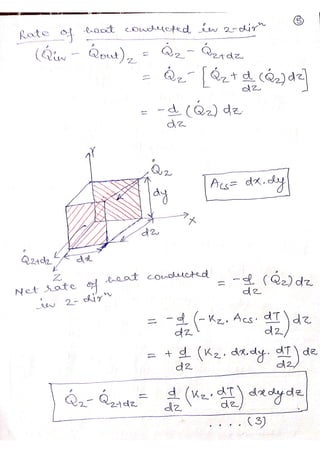 ⑤
Rate of heat conducted in z-dirⁿ
(Q̇in - Q̇out)z = Q̇z - Q̇z+dz
= Q̇z - [Q̇z + d/dz (Q̇z) dz]
= -d/dz (Q̇z) dz
Y
Q̇z
dy
Acs = dx.dy
X
dz
dx
Q̇z+dz
Z
Net rate of heat conducted in z-dirⁿ = -d/dz (Q̇z) dz
= -d/dz (-Kz. Acs. dT/dz) dz
= + d/dz (Kz. dx.dy. dT/dz) dz
Q̇z - Q̇z+dz = d/dz (Kz. dT/dz) dx dy dz
....(3)